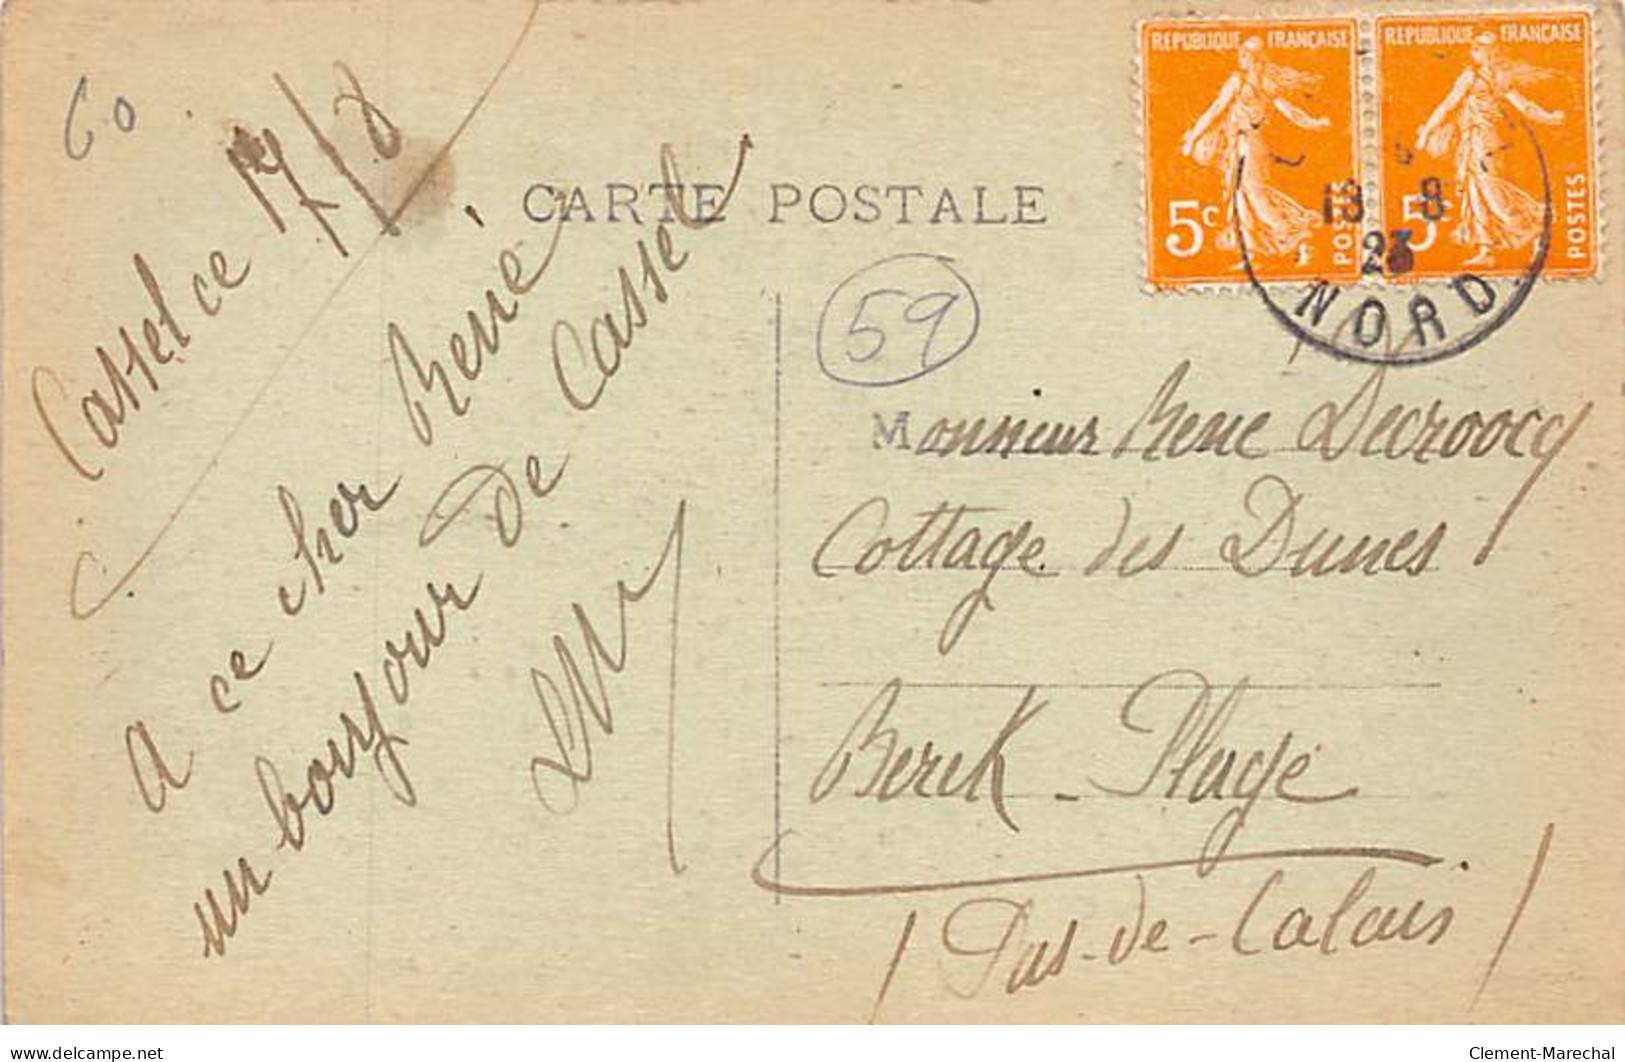 60
Cassel ce 17/8
CARTE POSTALE
REPUBLIQUE FRANÇAISE
5c
POSTES
REPUBLIQUE FRANÇAISE
5c
POSTES
18 8
23
NORD
59
a ce cher René
un bonjour de Cassel
Monsieur Rene Decroocq
Cottage des Dunes
Berck-Plage
(Pas-de-Calais)
delcampe.net
Clement-Marechal